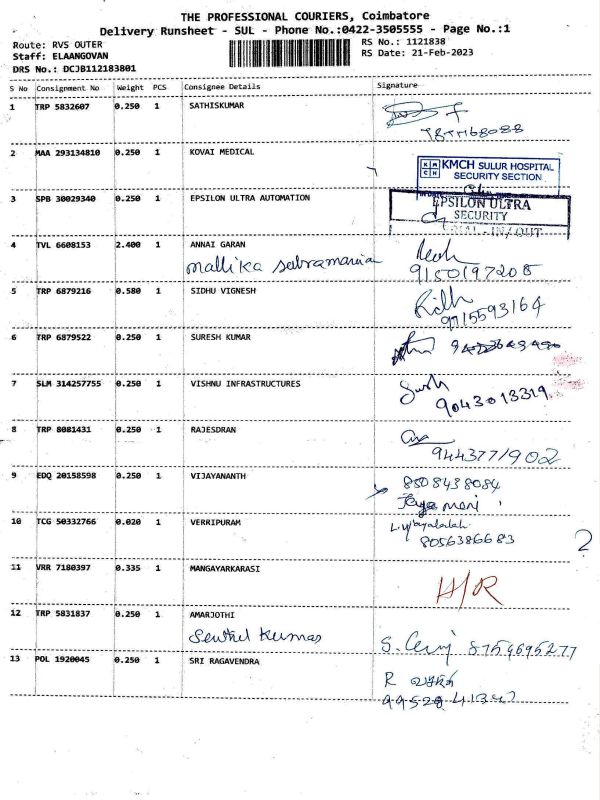 THE PROFESSIONAL COURIERS, Coimbatore
Delivery Runsheet - SUL - Phone No.:0422-3505555 - Page No.:1
Route: RVS OUTER RS No.: 1121838
Staff: ELAANGOVAN RS Date: 21-Feb-2023
DRS No.: DCJB112183801
S No Consignment No Weight PCS Consignee Details Signature
1 TRP 5832607 0.250 1 SATHISKUMAR
2 MAA 293134810 0.250 1 KOVAI MEDICAL
KMCH KMCH SULUR HOSPITAL
SECURITY SECTION
3 SPB 30029340 0.250 1 EPSILON ULTRA AUTOMATION
EPSILON ULTRA
SECURITY
IN/OUT
4 TVL 6608153 2.400 1 ANNAI GARAN
mallika 9150197208
5 TRP 6879216 0.580 1 SIDHU VIGNESH
9715593164
6 TRP 6879522 0.250 1 SURESH KUMAR
7 SLM 314257755 0.250 1 VISHNU INFRASTRUCTURES
9043013319
8 TRP 8081431 0.250 1 RAJESDRAN
9443771902
9 EDQ 20158598 0.250 1 VIJAYANANTH 8508438084
Jaya mani
10 TCG 50332766 0.020 1 VERRIPURAM
8056386683
2
11 VRR 7180397 0.335 1 MANGAYARKARASI
H/R
12 TRP 5831837 0.250 1 AMARJOTHI
Senthil Kumar S.
13 POL 1920045 0.250 1 SRI RAGAVENDRA R